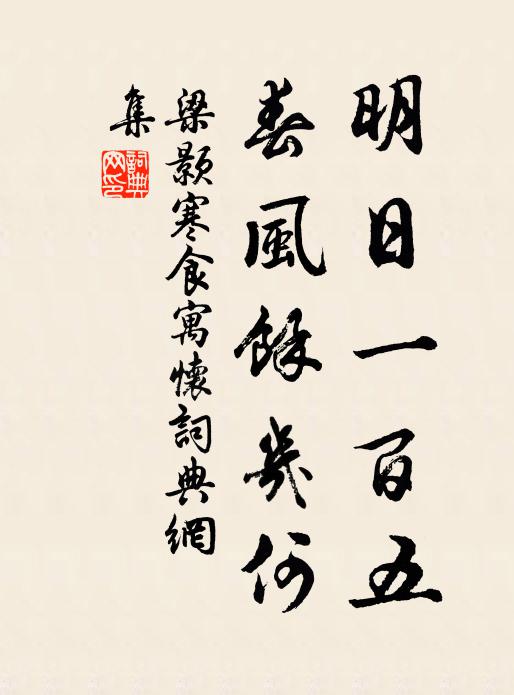 明日一百五
春風餘幾何
梁顥寒食寓懷詞典網
集
詞典網印